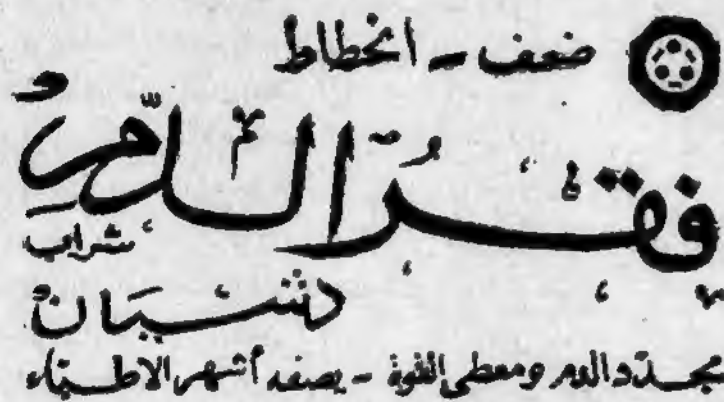 ضعف - انحطاط
فقر الدم
شراب
دشيان
مجدد الدم ومعطي القوة - يصفه أشهر الاطباء